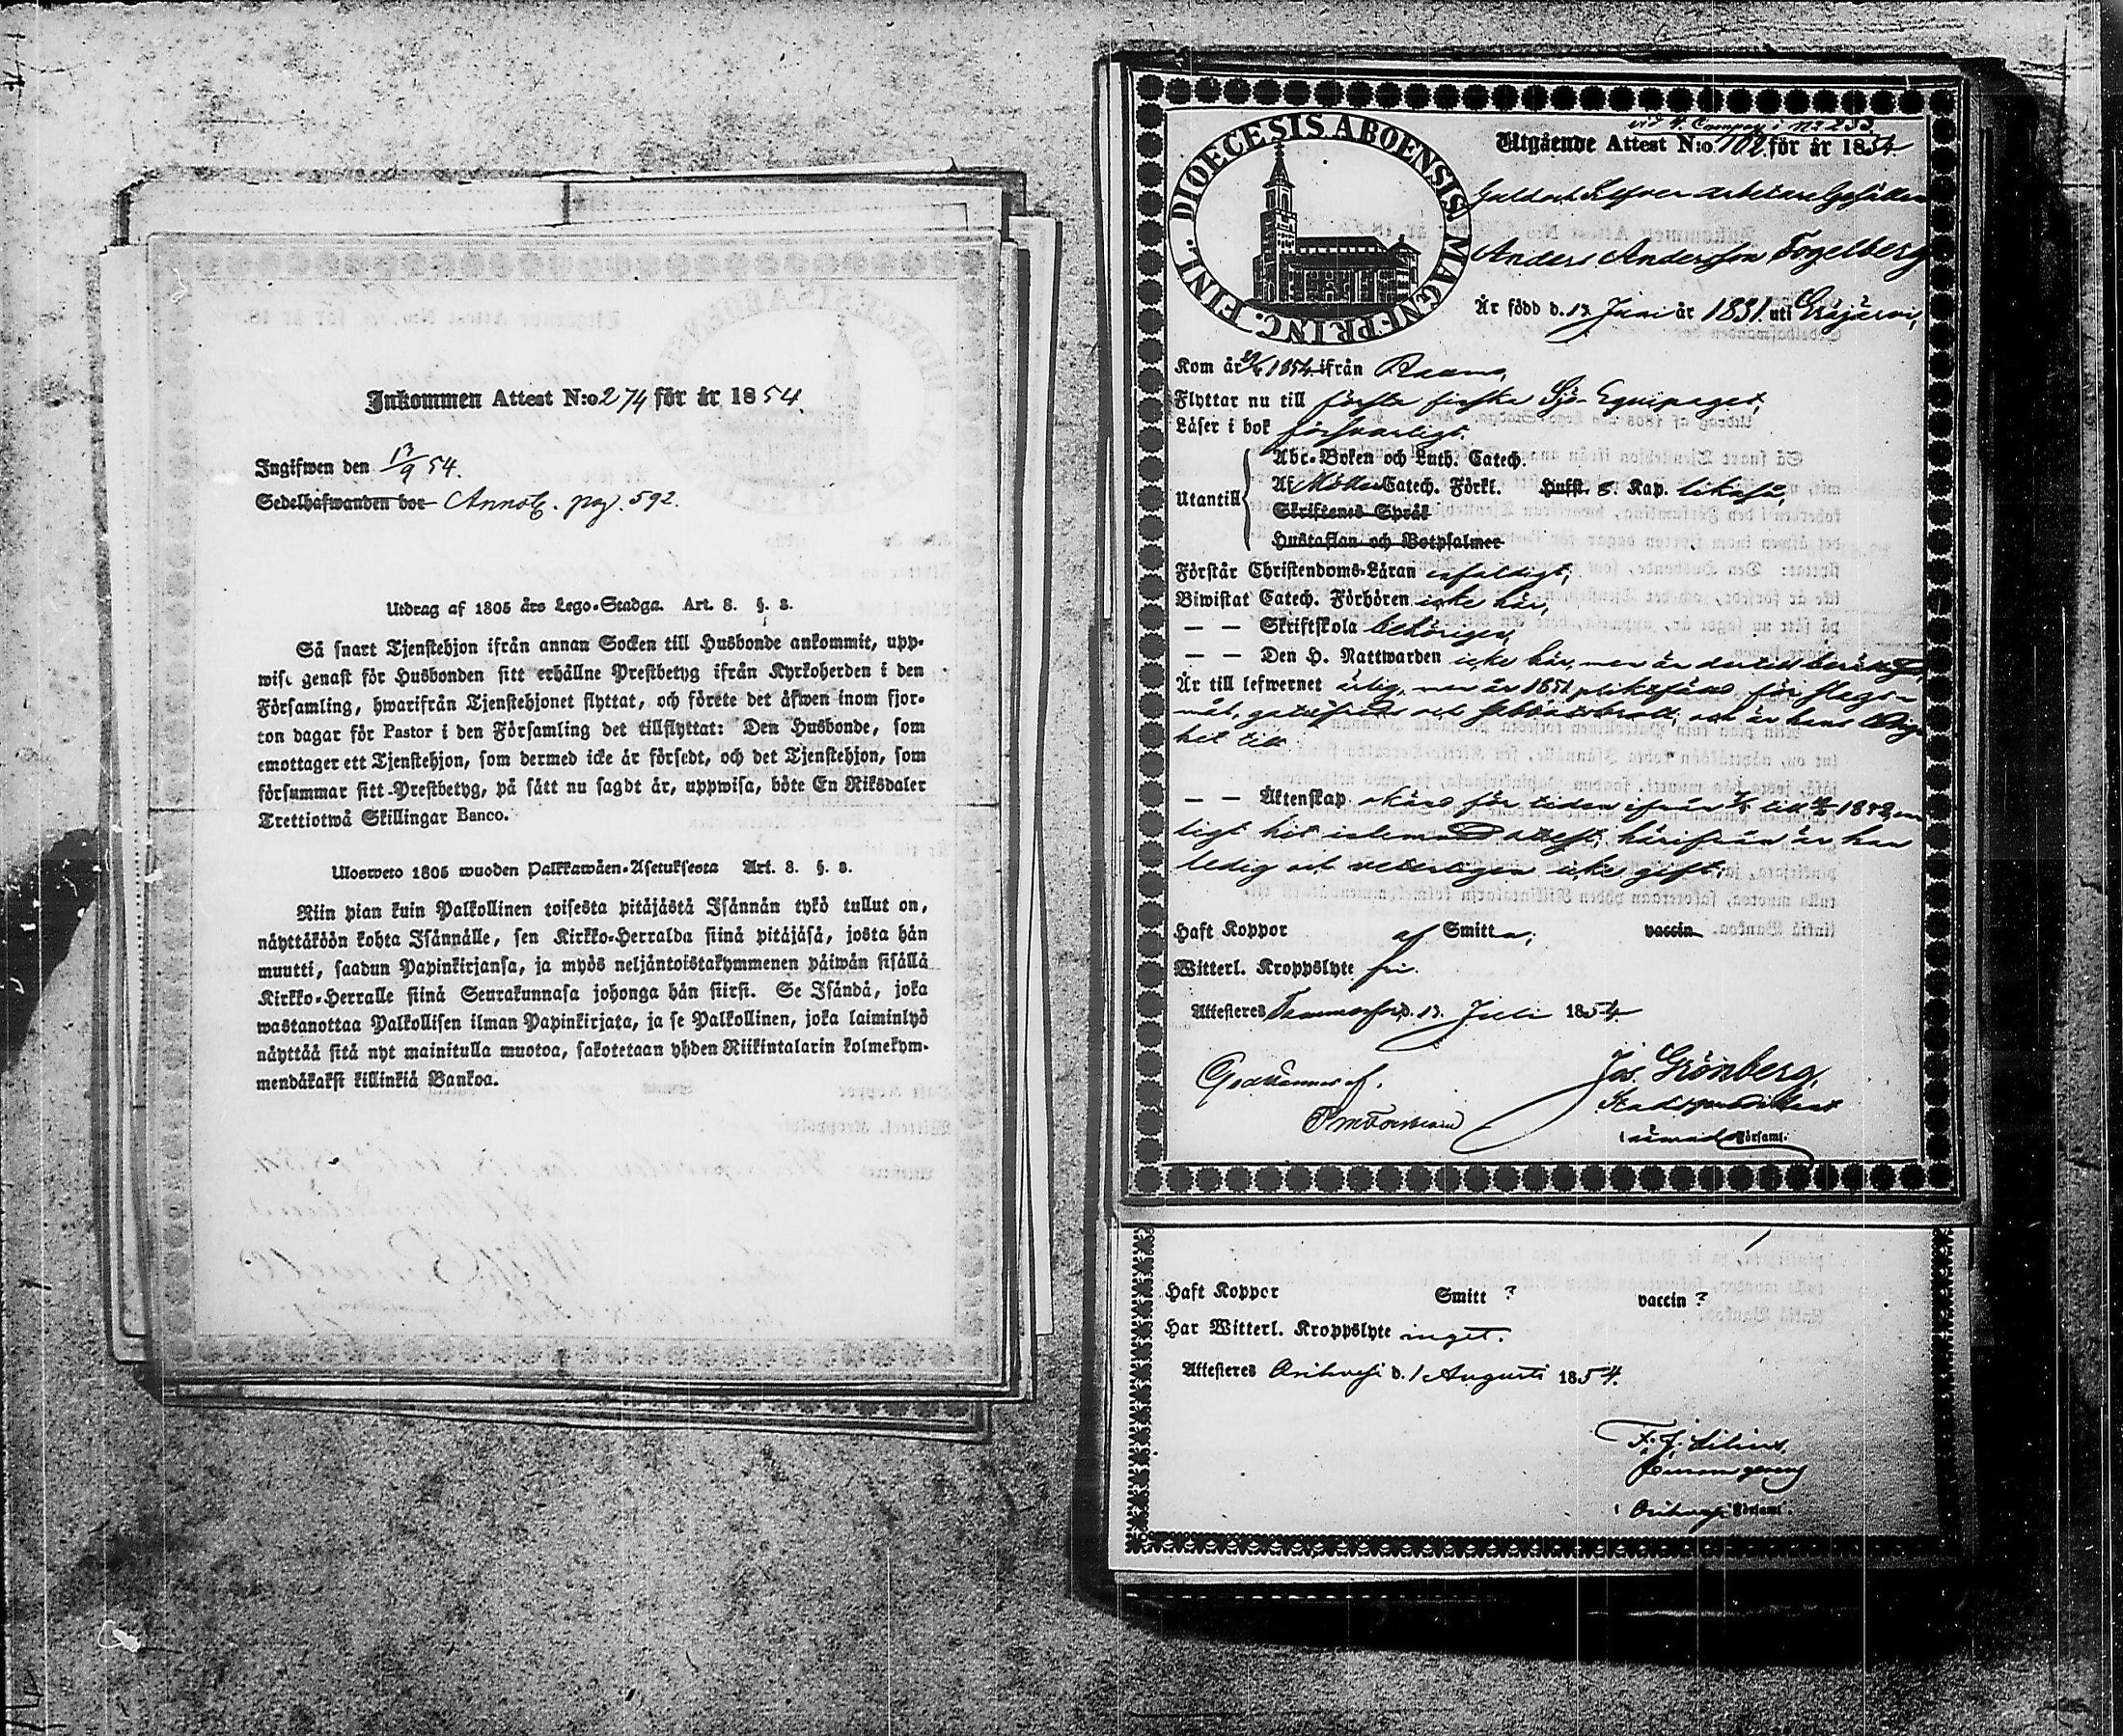 Inkommen Attest N:o 274 för år 1854.
Ingifwen den 13/9 54.
Sedelhafwanden bor Annot. pag. 592.
Utdrag af 1805 års Lego-Stadga. Art. 8. §. 2.
Så snart Tjenstehjon ifrån annan Socken till Husbonde ankommit, upp-
wise genast för Husbonden sitt erhållne Prestbetyg ifrån Kyrkoherden i den
Församling, hwarifrån Tjenstehjonet flyttat, och förete det äfwen inom fjor-
ton dagar för Pastor i den Församling det tillflyttat: Den Husbonde, som
emottager ett Tjenstehjon, som dermed icke är försedt, och det Tjenstehjon, som
försummar sitt Prestbetyg, på sätt nu sagdt är, uppwisa, böte En Riksdaler
Trettiotwå Skillingar Banco.
Ulosweto 1805 wuoden Palkkawäen-Asetuksesta Art. 8. §. 2.
Niin pian kuin Palkollinen toisesta pitäjästä Isännän tykö tullut on,
näyttäköön kohta Isännälle, sen Kirkko-Herralda siinä pitäjäsä, josta hän
muutti, saadun Papinkirjansa, ja myös neljäntoistakymmenen päiwän sisällä
Kirkko-Herralle siinä Seurakunnasa johonga hän siirsi. Se Isändä, joka
wastanottaa Palkollisen ilman Papinkirjata, ja se Palkollinen, joka laiminlyö
näyttää sitä nyt mainitulla muotoa, sakotetaan yhden Riikintalarin kolmekym-
mendäkaksi killinkiä Bankoa.
DIOECESIS ABOENSIS MAGNI PRINC. FINL.
vid 4. Compag i No 233
Utgående Attest N:o 102 för år 1854
Guld och Silfver arbetare Gesällen
Anders Andersson Fogelberg
Är född d. 13 Juni år 1831 uti
Kom år 1854 ifrån Raumo,
Flyttar nu till första finska Sjö Equipaget,
Läser i bok försvarligt.
Utantill
Abc-Boken och Luth. Catech.
Af Möllers Catech. Förkl. Husst. 8. Kap. likaså,
Skriftenes Språk
Hustaflan och Botpsalmer
Förstår Christendoms-Läran enfaldigt,
Biwistat Catech. Förhören icke här,
— — Skriftskola behörigen,
— — Den H. Nattwarden icke här, men är dertill berättigad,
Är till lefwernet ärlig, men år 1851 pliktfäld för slags-
mål,
het till
— — Äktenskap för tiden ifrån till 1842, en
ligt hit attest, härifrån är han
ledig och veterligen icke gift.
Haft Koppor af Smitta; vaccin
Witterl. Kroppslyte fri.
Attesteras Tammerfors d. 13. Juli 1854
Godkännes af.
Jos. Grönberg,
i Församl.
Haft Koppor Smitt ? vaccin ?
Har Witterl. Kroppslyte inget.
Attesteras Orihvesi d. 1 Augusti 1854.
F. J. Lilius
i Orihvesi Församl.